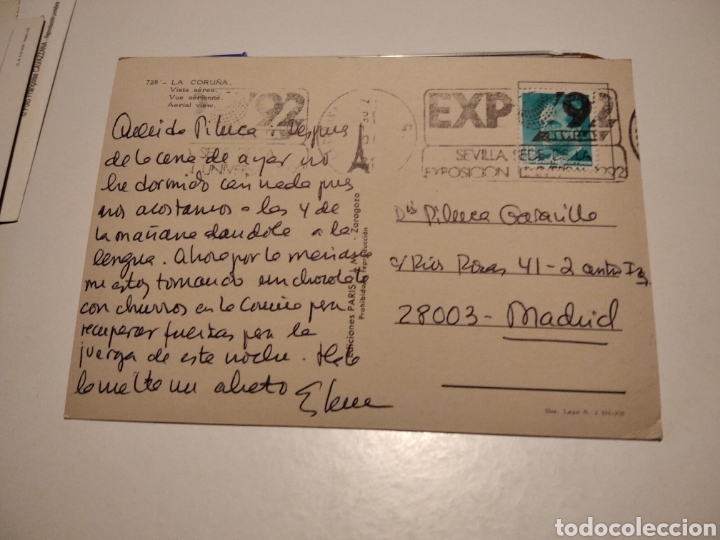 728 - LA CORUÑA.
Vista aérea.
Vue aérienne.
Aerial view.
Querida Piluca: Después
de la cena de ayer no
he dormido casi nada pues
nos acostamos a las 4 de
la mañana dandole a la
lengua. Ahora por la
me estoy tomando un chocolate
con churros en la Coruña para
recuperar fuerzas para la
juerga de esta noche. Hasta
la vuelta un abrazo Elena
Ediciones PARIS - Zaragoza
Prohibida la reproducción
'92
EXPO '92
SEVILLA
SEVILLA, SEDE DE LA
EXPOSICION UNIVERSAL 1992
Piluca
c/ Rios Rosas 41-2
28003 - Madrid
todocoleccion